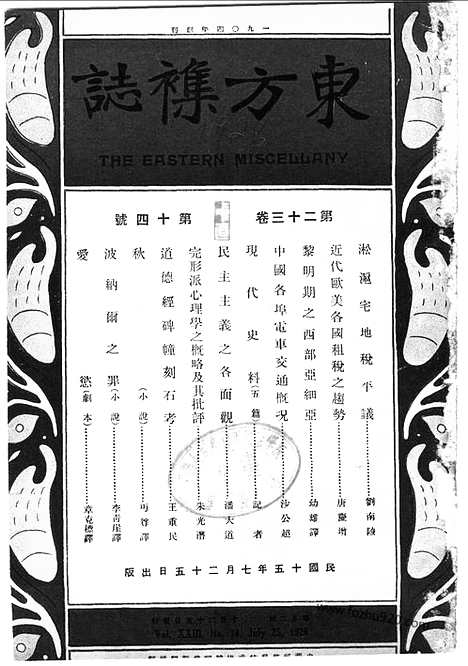 一九〇四年創刊
東方雜誌
THE EASTERN MISCELLANY
第二十三卷 第十四號
淞滬宅地稅平議 劉南陵
近代歐美各國租稅之趨勢 唐慶增
黎明期之西部亞細亞 幼雄譯
中國各埠電車交通概況 沙公超
現代史料(五篇) 記者
民主主義之各面觀 潘大道
完形派心理學之概略及其批評 朱光潛
道德經碑幢刻石考 王重民
秋(小說)
波納爾之罪(小說) 李青崖譯
愛慾(劇本) 章克標譯
民國十五年七月二十五日出版
Vol. XXIII, No. 14, July 25, 1926